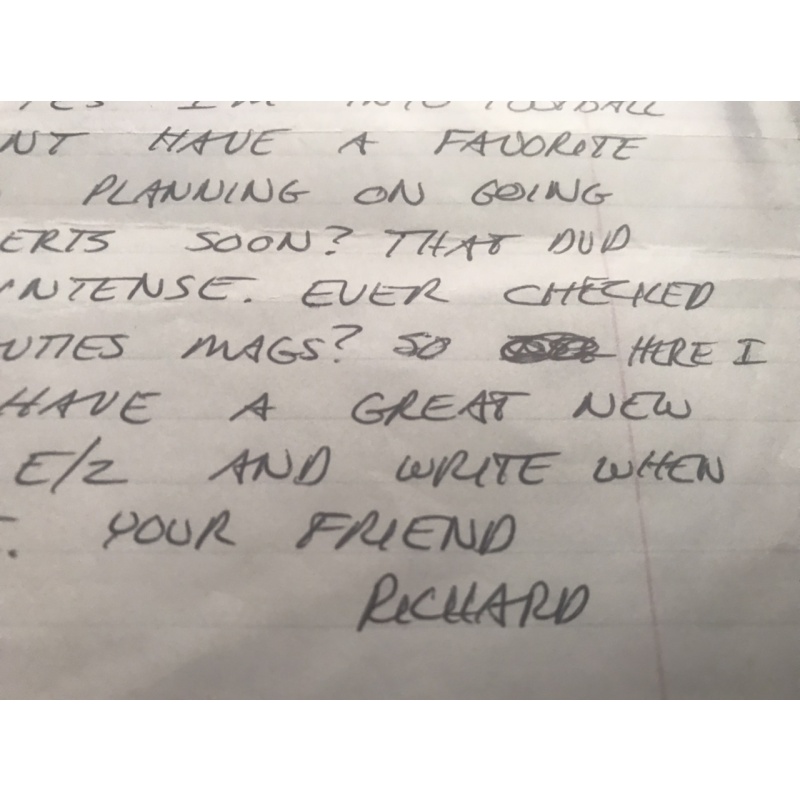 I'M INTO FOOTBALL
HAVE A FAVORITE
PLANNING ON GOING
ERTS SOON? THAT DUD
INTENSE. EVER CHECKED
UTIES MAGS? SO HERE I
HAVE A GREAT NEW
E/Z AND WRITE WHEN
YOUR FRIEND
RICHARD